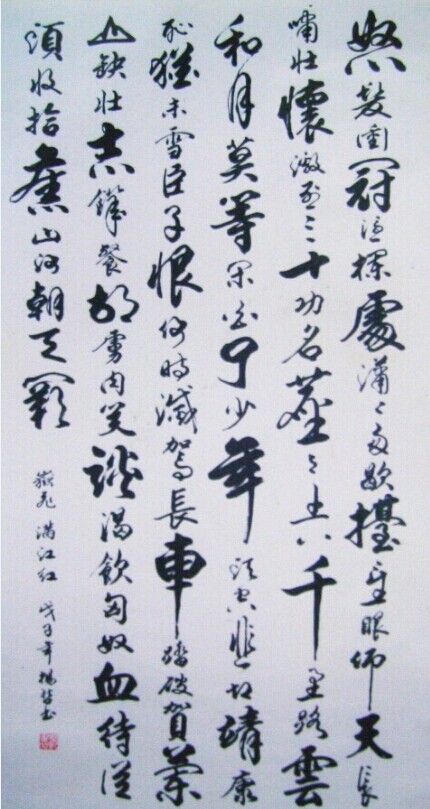 怒髮衝冠憑欄處瀟瀟雨歇擡望眼仰天長
嘯壯懷激烈三十功名塵與土八千里路雲
和月莫等閑白了少年頭空悲切靖康
恥猶未雪臣子恨何時滅駕長車踏破賀蘭
山缺壯志饑餐胡虜肉笑談渴飲匈奴血待從
頭收拾舊山河朝天闕
嶽飛滿江紅 戊子年楊書